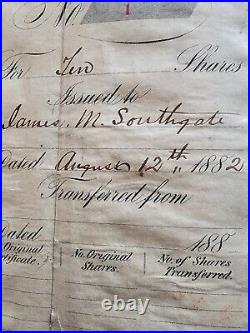 No. 1
For Ten Shares
Issued to
James M. Southgate
Dated August 12th, 1882
Transferred from
Dated 188
No. Original Shares.
No. of Shares Transferred.
Original
ertificate.